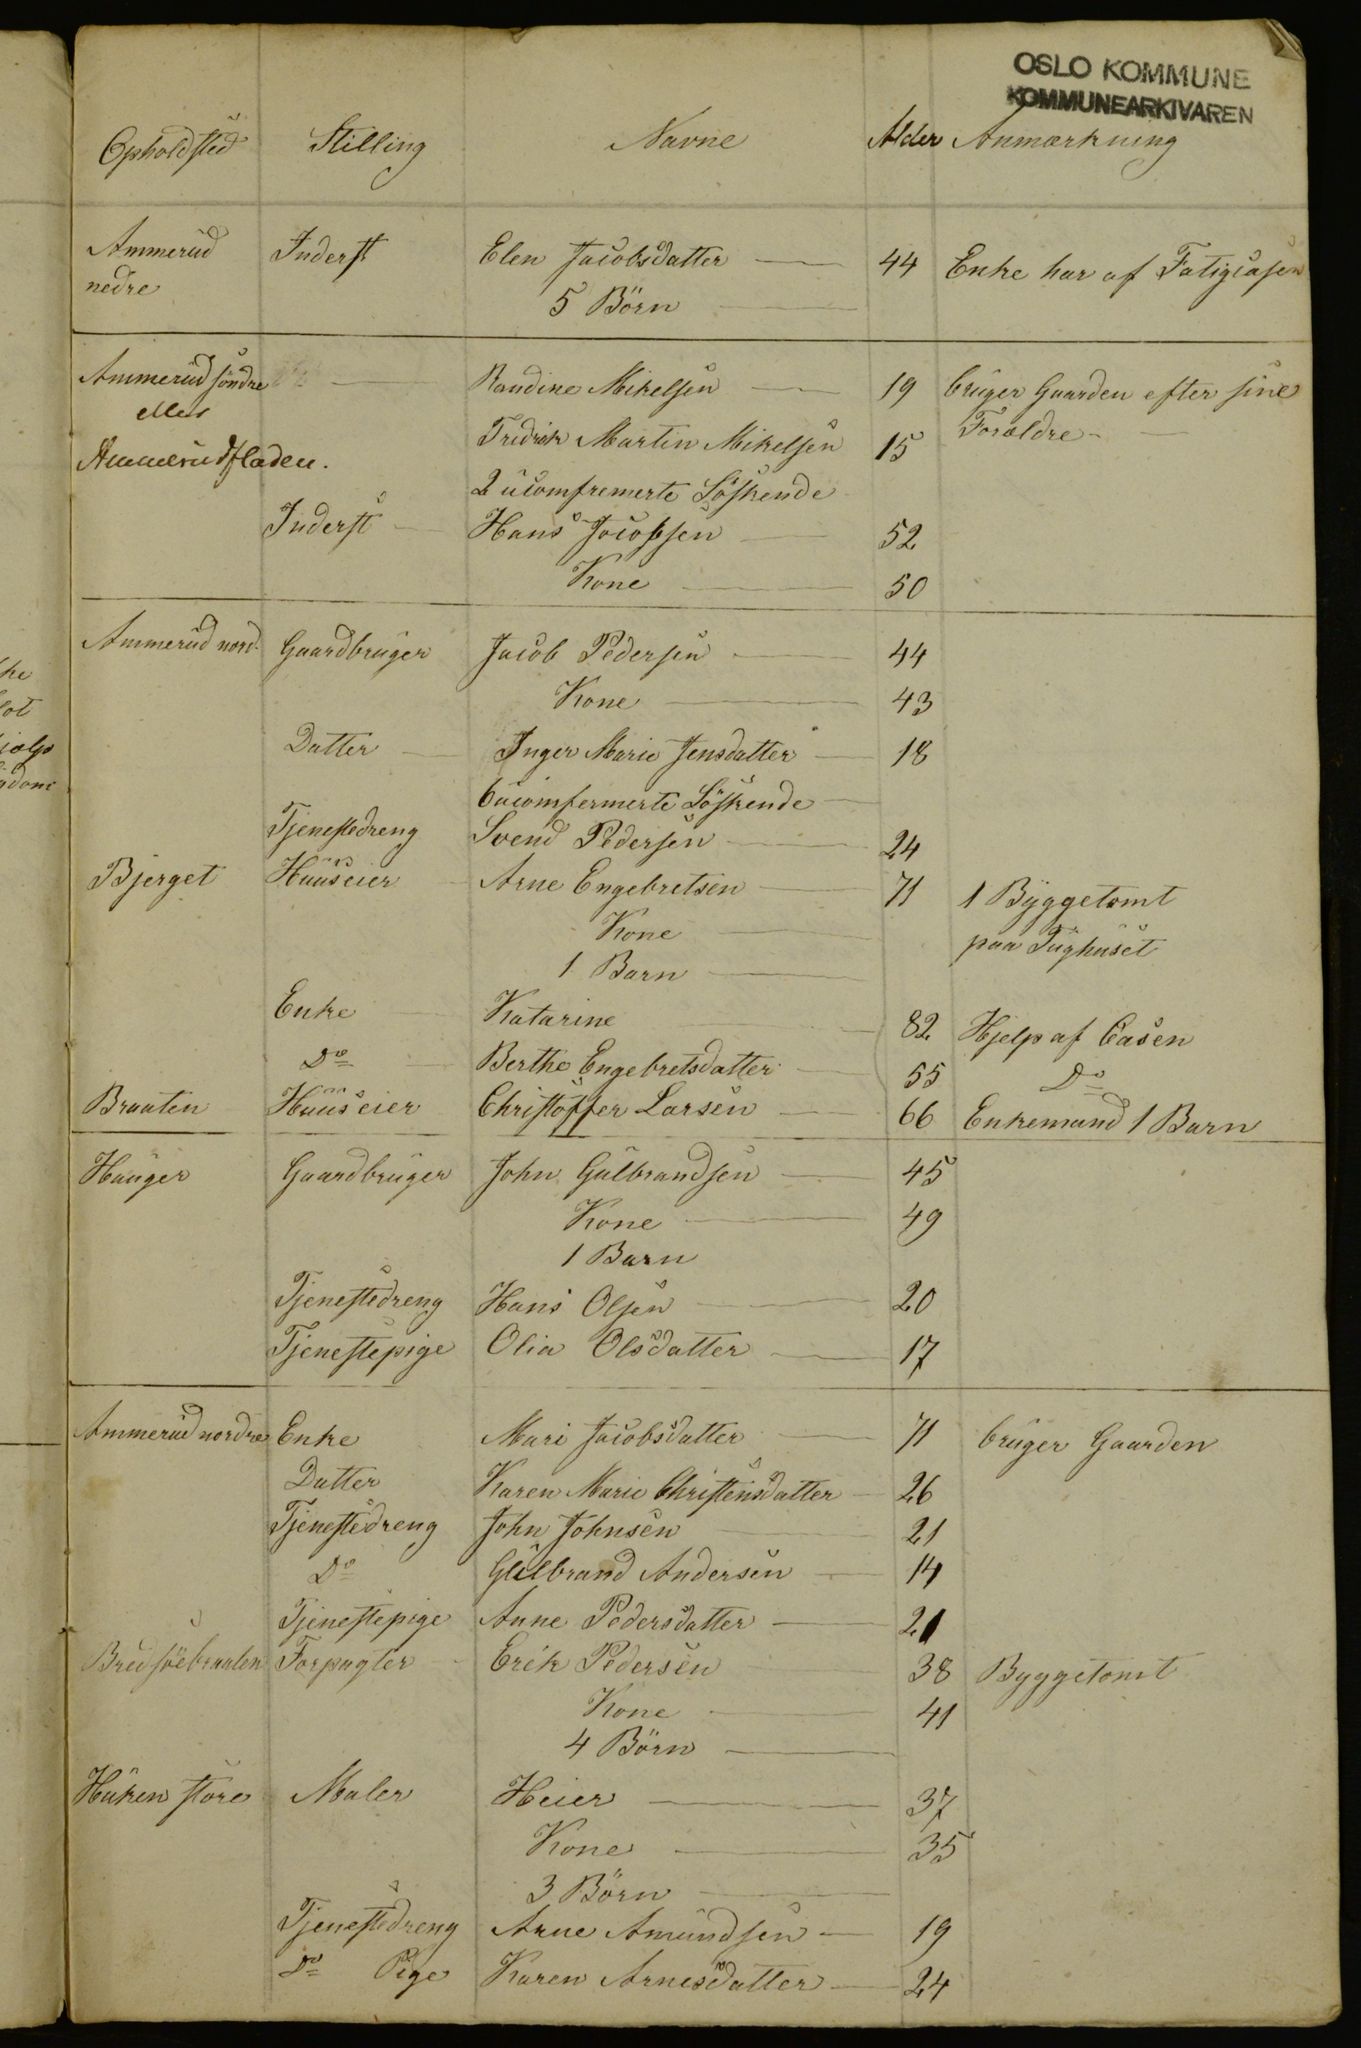 OSLO KOMMUNE
KOMMUNEARKIVAREN
Opholdsted Stilling Navne Alder Anmærkning
Ammerud Inderst Elen Jacobsdatter 44 Enke har af
nedre 5 Börn
Ammerud söndre Randine Mikelsen 19 bruger Gaarden efter sine
eller Fredrik Martin Mikelsen 15 Forældre
Ammerudfladen.
2 ucomfremerte Söskende
Inderst Hans Jacobsen 52
Kone 50
Ammerud nord. Gaardbruger Jacob Pedersen 44
Kone 43
Datter Inger Marie Jensdatter 18
6 ucomfermerte Söskende
Tjenestedreng Svend Pedersen 24
Bjerget Huuseier Arne Engebretsen 71 1 Byggetomt
Kone paa Tughuset
1 Barn
Enke Katarine 82 Hjelp af Casen
Do Berthe Engebretsdatter 55 Do
Braaten Huuseier Christoffer Larsen 66 Enkemand 1 Barn
Hauger Gaardbruger John Gulbrandsen 45
Kone 49
1 Barn
Tjenestedreng Hans Olsen 20
Tjenestepige Olia Olsdatter 17
Ammerud nordre Enke Mari Jacobsdatter 71 bruger Gaarden
Datter Karen Marie Christensdatter 26
Tjenestedreng John Johnsen 21
Do Gulbrand Andersen 14
Tjenestepige Anne Pedersdatter 21
Bredsöebraaten Forpagter Erik Pedersen 38 Byggetomt
Kone 41
4 Börn
Huken store Maler Heier 37
Kone 35
3 Börn
Tjenestedreng Arne Amundsen 19
Do Pige Karen Arnesdatter 24